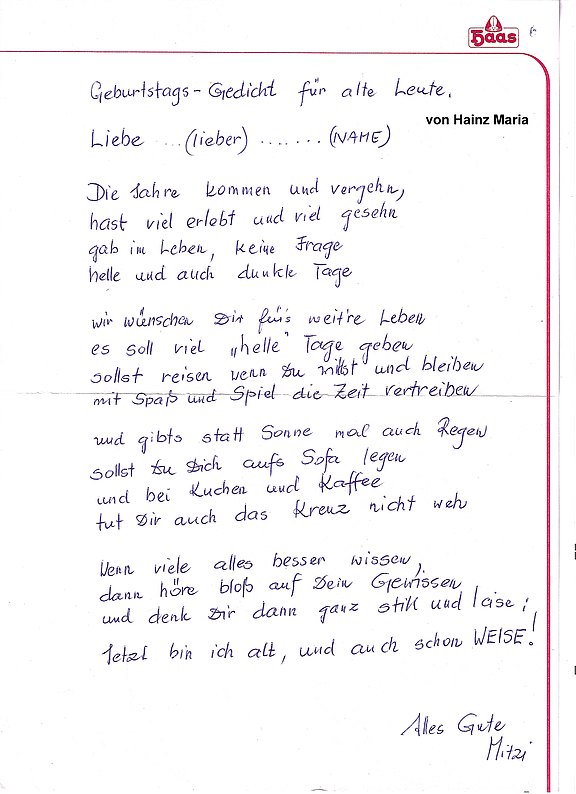 Haas
Geburtstags-Gedicht für alte Leute.
von Hainz Maria
Liebe ...(lieber) ....... (NAME)
Die Jahre kommen und vergehn,
hast viel erlebt und viel gesehn
gab im Leben, keine Frage
helle und auch dunkle Tage
wir wünschen Dir für's weit're Leben
es soll viel „helle" Tage geben
sollst reisen wenn Du willst und bleiben
mit Spaß und Spiel die Zeit vertreiben
und gibts statt Sonne mal auch Regen
sollst Du Dich aufs Sofa legen
und bei Kuchen und Kaffee
tut Dir auch das Kreuz nicht weh
Wenn viele alles besser wissen,
dann höre bloß auf Dein Gewissen
und denk Dir dann ganz still und leise:
Jetzt bin ich alt, und auch schon WEISE!
Alles Gute
Mitzi